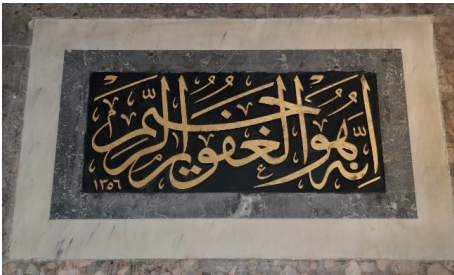 إنه هو الغفور الرحيم
١٣٥٦